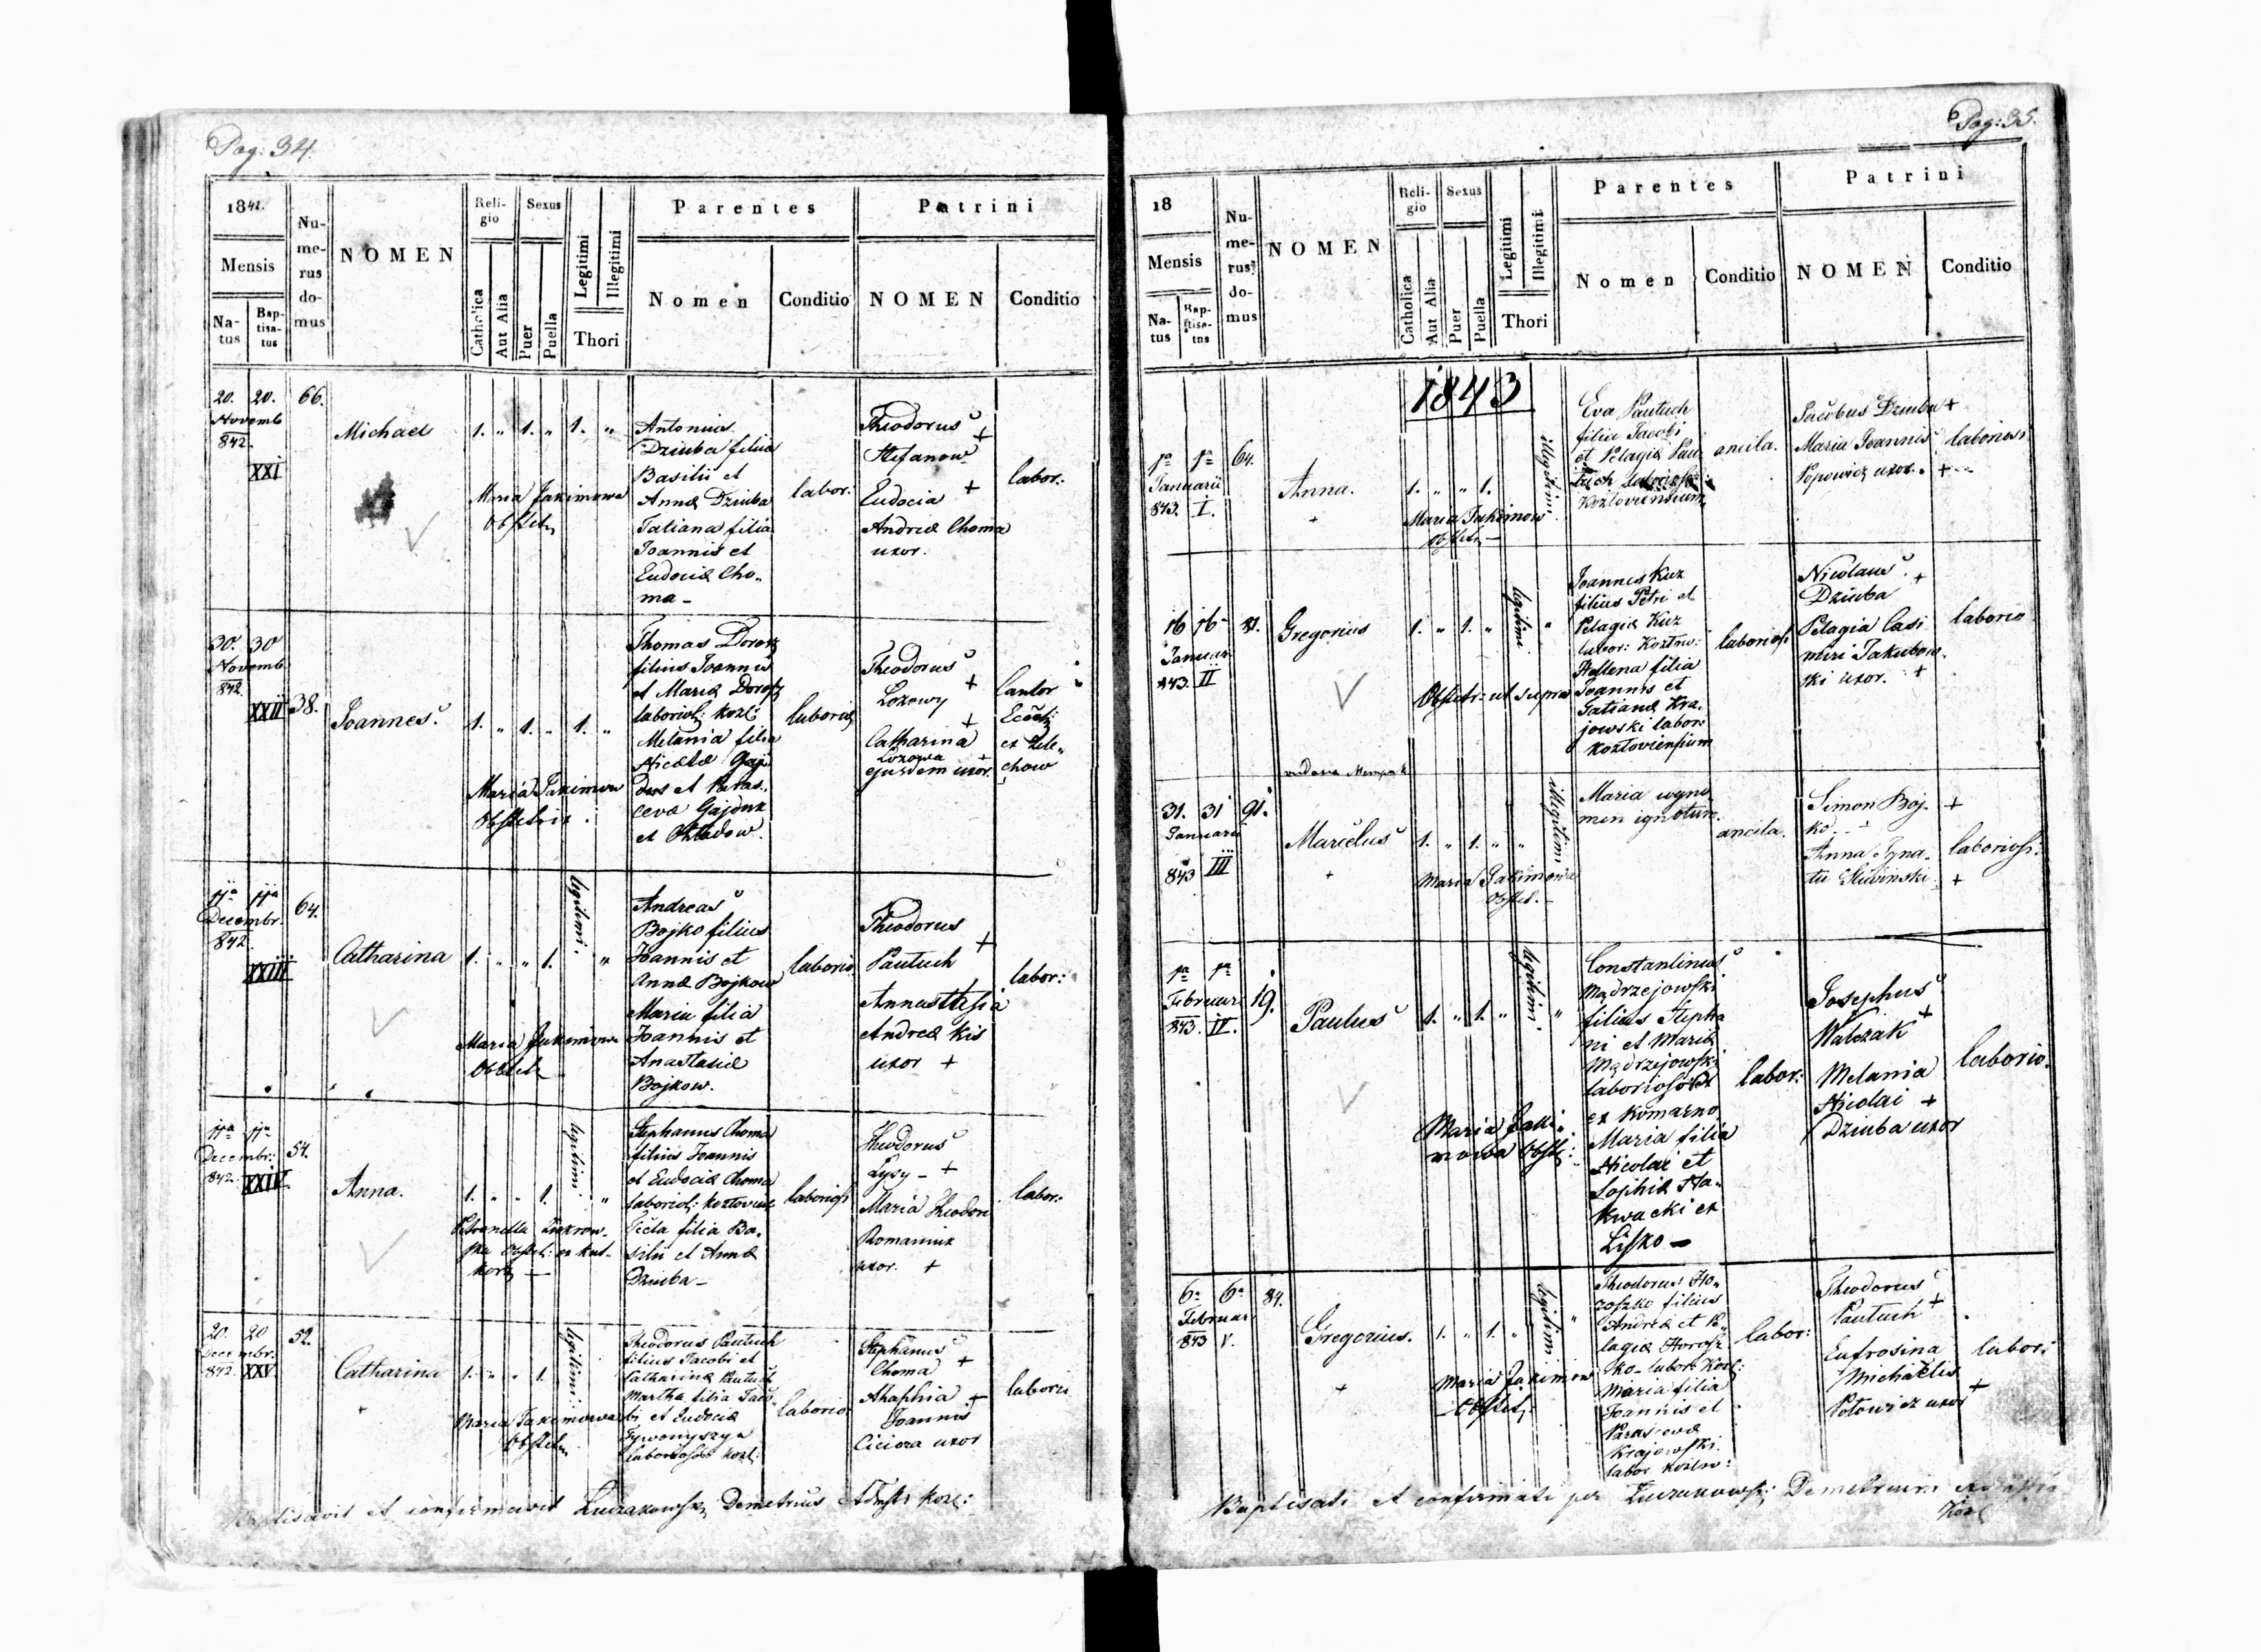 Pag: 34.
1842.
Mensis
Na-
tus
Bap-
tisa-
tus
Nu-
me-
rus
do-
mus
NOMEN
Reli-
gio
Catholica
Aut Alia
Sexus
Puer
Puella
Legitimi
Illegitimi
Thori
Parentes
Nomen
Conditio
Patrini
NOMEN
Conditio
20. 20. 66.
Novemb
842.
XXI
Michael
1. " 1. " 1. "
Maria Jakimowa
Obstetr
Antonius
Dziuba filius
Basilii et
Annæ Dziuba
Tatiana filia
Joannis et
Eudociæ Cho„
ma –
labor:
Theodorus
Stefanow +
Eudocia +
Andreæ Choma
uxor.
labor:
30. 30
Novemb.
842.
XXII 38.
Joannes
1. " 1. " 1. "
Maria Jakimowa
Obstetrix
Thomas
filius Joannis
et Mariæ
laborios: kozl:
Melania filia
Nicetæ
et Paras„
ceva Gajduk
et
laborios
Theodorus
Lozowy +
Catharina +
Lozowa
ejusdem uxor. +
Cantor
Eccl:
ex Zele„
chow
11a 11a 64.
Decembr.
842.
XXIII
Catharina
1. " " 1. legitimi. "
Maria Jakimowa
Obstetr
Andreas
Bojko filius
Joannis et
Annæ Bojkow
Maria filia
Joannis et
Anastasiæ
Bojkow.
laborio
Theodorus
Pautuch +
Annastasia
Andreæ Kis
uxor +
labor:
11a 11a 54.
Decembr:
842. XXIV
Anna.
1. " " 1. legitimi. "
Petronella
Obstet: ex kut„
korz –
Stephanus Choma
filius Joannis
et Eudociæ Choma
laborios: kozloviens
Tecla filia Ba„
silii et Annæ
Dziuba –
laboriosi
Theodorus
Lysy – +
Maria Theodori
Romaniuk
uxor. +
labor:
20. 20 52.
Decembr.
842. XXV
Catharina
1. " " 1. legitimi
Maria Jakimowa
Obstetr
Theodorus Pautuch
filius Jacobi et
Catharinæ Pautuch
Martha filia Jaco„
bi et Eudociæ
laborios kozl:
laborio
Stephanus
Choma +
Ahaphia +
Joannis
Ciciora uxor
laborio
Baptisavit et confirmavit Luczakowski Demetrius Admstr kozl:
Pag: 35.
18
Mensis
Na-
tus
Bap-
tisa-
tus
Nu-
me-
rus
do-
mus
NOMEN
Reli-
gio
Catholica
Aut Alia
Sexus
Puer
Puella
Legitimi
Illegitimi
Thori
Parentes
Nomen
Conditio
Patrini
NOMEN
Conditio
1843
1a 1a 64.
Januarii
843. I.
Anna.
+
1. " " 1. illegitimi
Maria Jakimow
Obstetr –
Eva Pautuch
filia Jacobi
et Pelagiæ Pau„
tuch
Kozloviensium
ancila.
Jacobus Dziuba +
Maria Joannis
Popowicz uxor. +
laboriosi
16 16
Januar
843. II
Gregorius
1. " 1. " legitimi "
Obstetr: ut supra
Joannes Kuz
filius Petri et
Pelagiæ Kuz
labor: Kozlow:
Hellena filia
Joannis et
Tatianæ Kra„
jowski labor:
kozloviensium
laboriosi
Nicolaus +
Dziuba
Pelagia Casi
miri Jakubow„
ski uxor. +
laborio
31. 31 91.
Januarii
843 III
Marcelus
+
1. " 1. " " illegitimi
Maria Jakimowa
Obstet. –
Maria
men ignotum
ancila.
Simon Boj„ +
ko
Anna Igna„
tii Slivinski +
laboriosi:
1a 1a 19.
Februar
843. IV.
Paulus
1. " 1. " legitimi "
Maria Jaki„
mowa Obst:
Constantinus
Mądrzejowski
filius Stepha
ni et Mariæ
Mądrzejowski
laboriosor
ex Komarno
Maria filia
Nicolai et
Sophiæ Ha„
kwacki ex
Lisko –
labor:
Josephus
Walczak +
Melania
Nicolai +
Dziuba uxor
laborio.
6a 6a 84.
Februar
843 V.
Gregorius.
+
1. " 1. " legitimi "
Maria Jakimow
– Obstet:
Theodorus Ho„
roszko filius
Andreæ et Pe„
lagiæ Horosz
ko labor: kozl:
Maria filia
Joannis et
Parascevæ
Krajowski
labor kozlov:
labor:
Theodorus
Pautuch +
Eufrosina
Michaelis
Potowicz uxor +
labor:
Baptisati et confirmati per Luczakowski Demetrium
Kozl